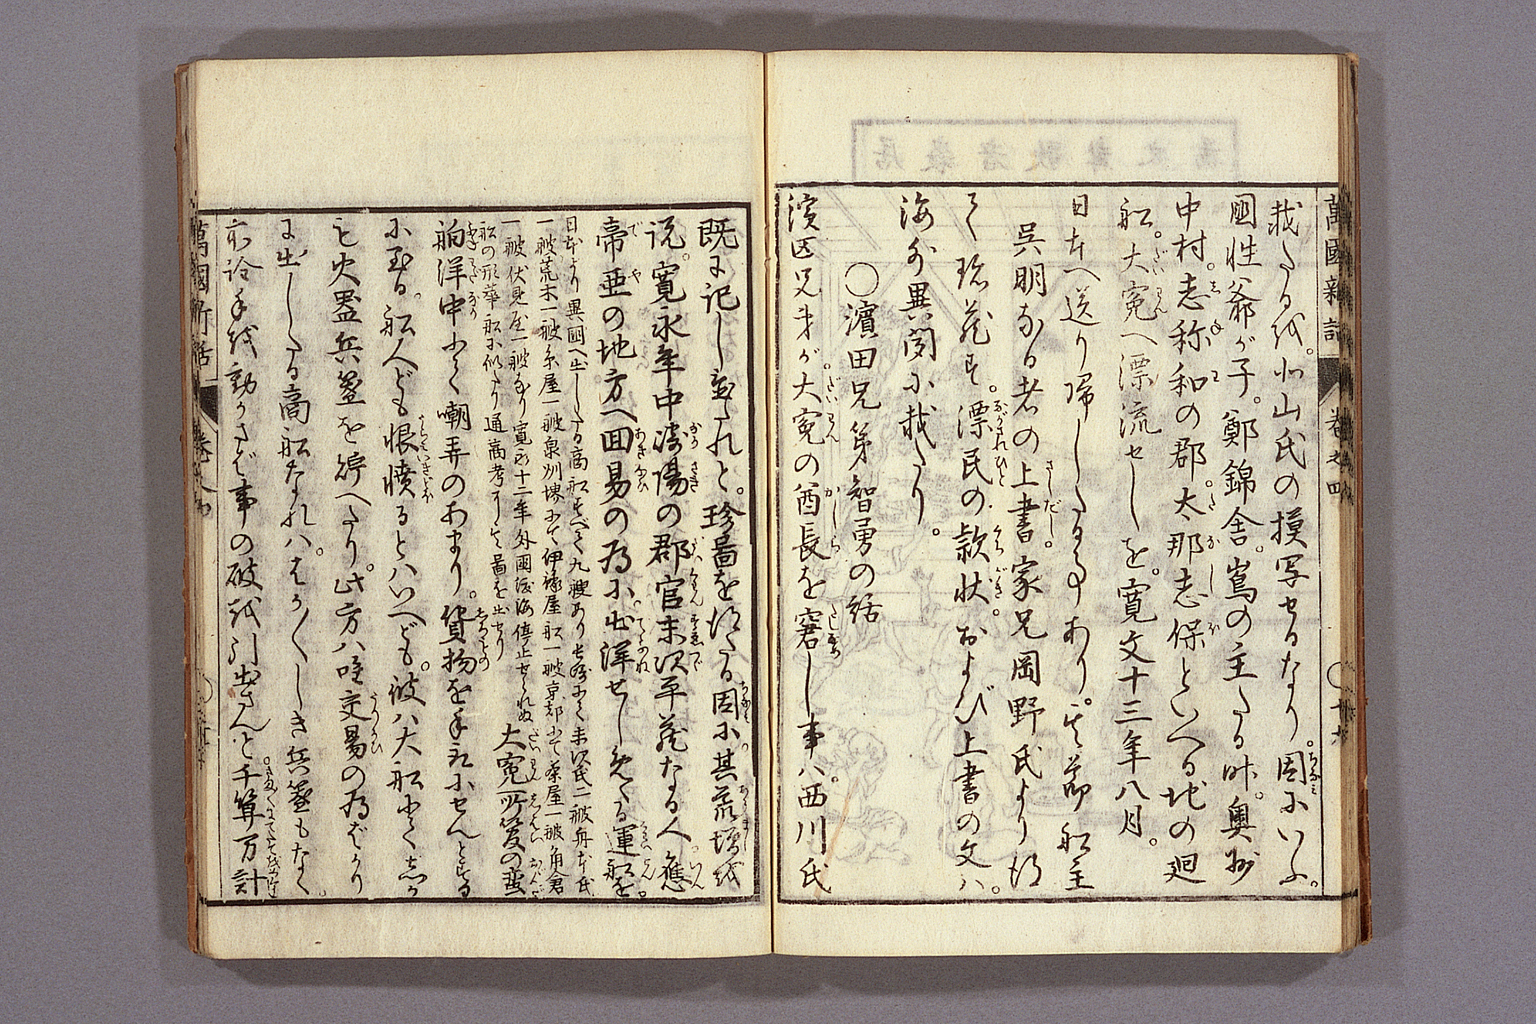 萬國新話
巻之四
○十六
載たる或。北山氏の摸写せるなり。因にいふ。
國性爺が子。鄭錦舎。嶌の主たる時。奥州
中村。志称和の郡。大那志保といへる地の廻
船。大寃へ漂流せしを。寛文十三年八月。
日本へ送り帰したる事あり。其節船主
呉明なる者の上書。家兄岡野氏より得
て珎蔵す。漂民の款状。および上書の文ハ。
海外異聞に載たり。
○濱田兄弟智勇の話
濱田兄弟が大寃の酋長を窘し事ハ。西川氏
既に記し置たれど。珍啚を得たる因に其荒増を
説。寛永年中。津陽の郡官末次平蔵なる人。應
帝亜の地方へ回易の為に出洋せしめたる運船を。
日本より異國へ出したる商船すべて九艘あり長崎にて末次氏二艘舟本氏
一艘荒木一艘糸屋一艘泉州堺にて伊豫屋船一艘京都にて茶屋一艘角倉
一艘伏見屋一艘なり寛永十二年外國渡海停止せられぬ
船の形華船に似たり通商考にその啚を出せり
大寃所築の蛮
舶洋中にて嘲弄のあまり。貨物を手取にせんとする
に至る。船人ども恨憤るといへども。彼ハ大船にて
もと火器兵器を備へたり。此方ハ唯交易の為ばかり
に出したる商船なれハ。はか〲しき兵器もなく。
夲詮手を動かさバ事の破を引出さんと千算万計
萬國新話
巻之四